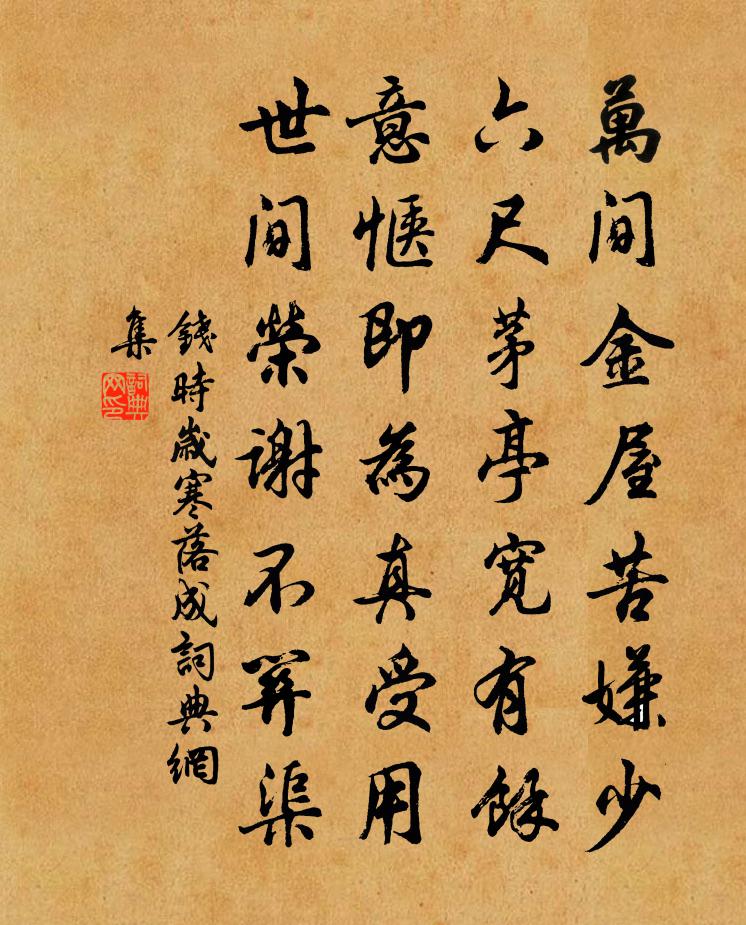 萬間金屋苦嫌少
六尺茅亭寬有餘
意愜即為真受用
世間榮謝不關渠
錢時歲寒落成詞典網
集
詞典
网印